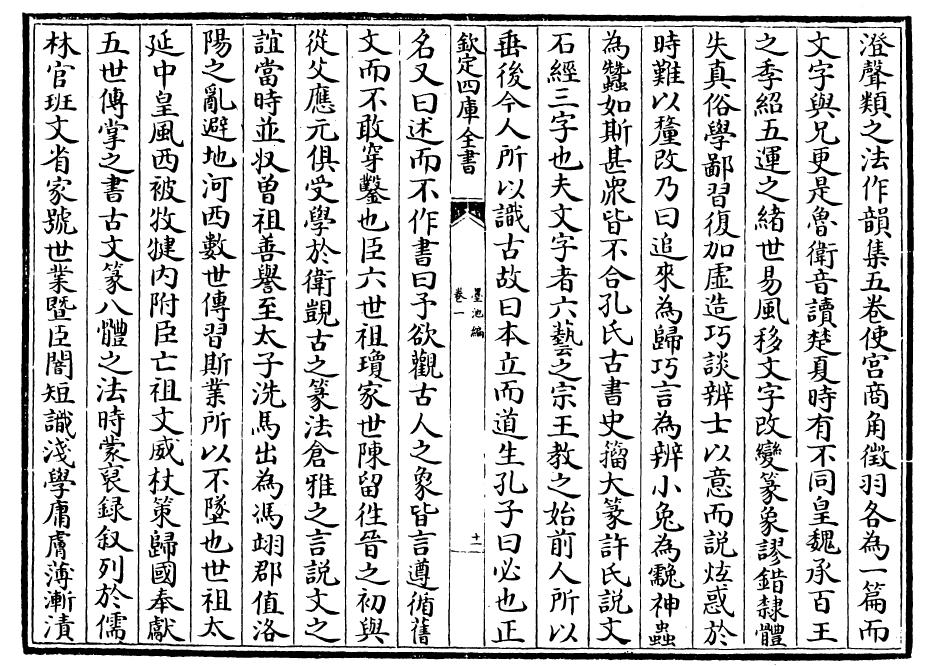 澄聲類之法作韻集五卷使宮商角徵羽各為一篇而
文字與兄更是魯衛音讀楚夏時有不同皇魏承百王
之季紹五運之緒世易風移文字改變篆象謬錯隸體
失真俗學鄙習復加虛造巧談辨士以意而説炫惑於
時難以釐改乃曰追來為歸巧言為辨小兔為䨲神蟲
為蠶如斯甚衆皆不合孔氏古書史籀大篆許氏説文
石經三字也夫文字者六藝之宗王教之始前人所以
垂後今人所以識古故曰本立而道生孔子曰必也正
欽定四庫全書
墨池編
卷一
十一
名又曰述而不作書曰予欲觀古人之象皆言遵循舊
文而不敢穿鑿也臣六世祖瓊家世陳留徃晉之初與
從父應元俱受學於衛覬古之篆法倉雅之言説文之
誼當時並収曾祖善譽至太子洗馬出為馮翊郡值洛
陽之亂避地河西數世傳習斯業所以不墜也世祖太
延中皇風西被牧犍内附臣亡祖文威杖策歸國奉獻
五世傳掌之書古文篆八體之法時蒙裒録叙列於儒
林官班文省家號世業暨臣闇短識淺學庸膚薄漸漬